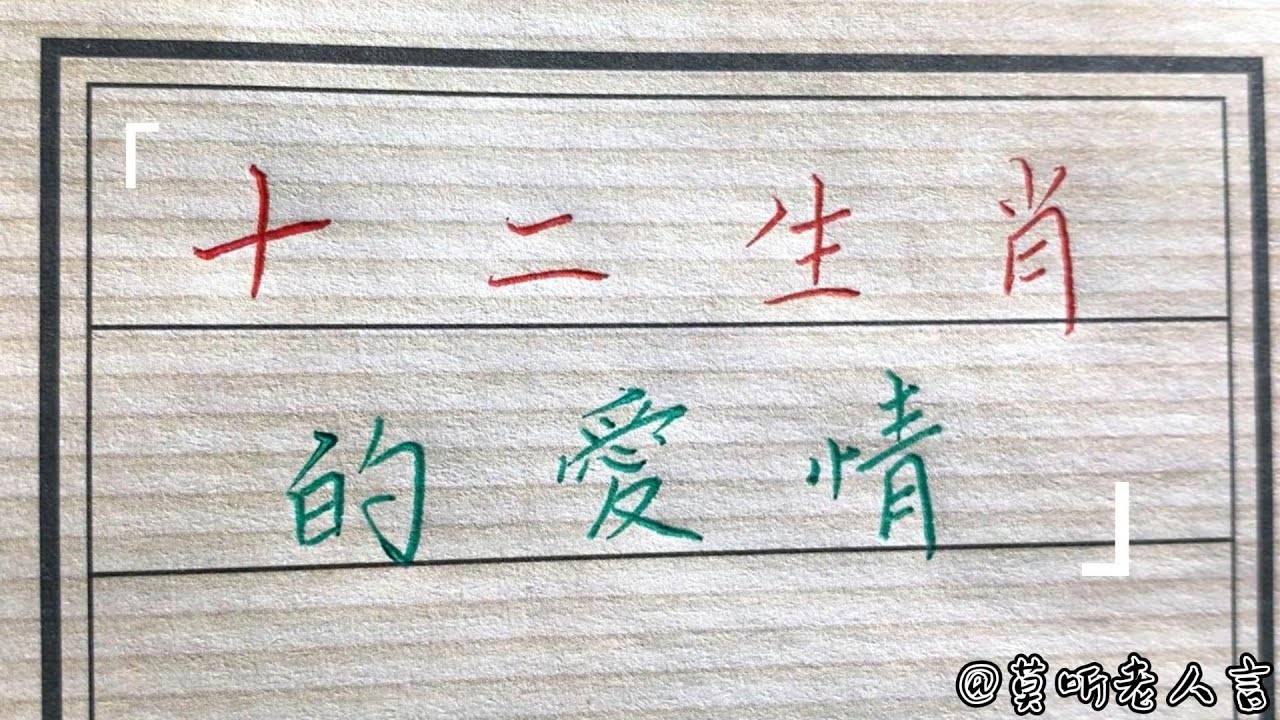 「十二生肖
的愛情」
@莫听老人言